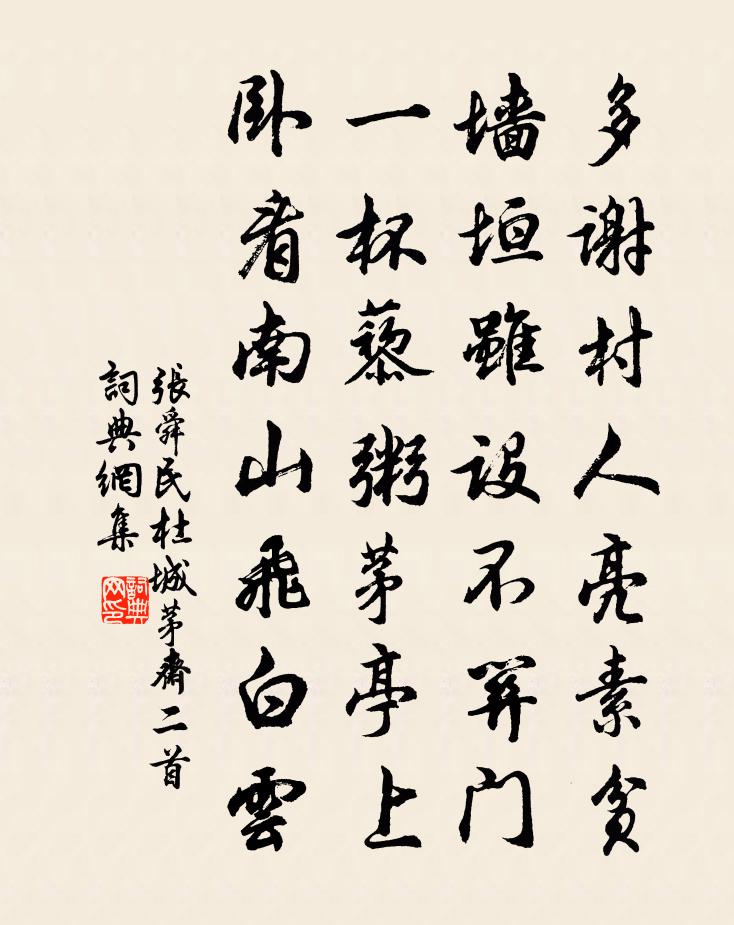 多謝村人亮素貧
墻垣雖設不關門
一杯藜粥茅亭上
卧看南山飛白雲
張舜民杜城茅齋二首
詞典網集
詞典网印